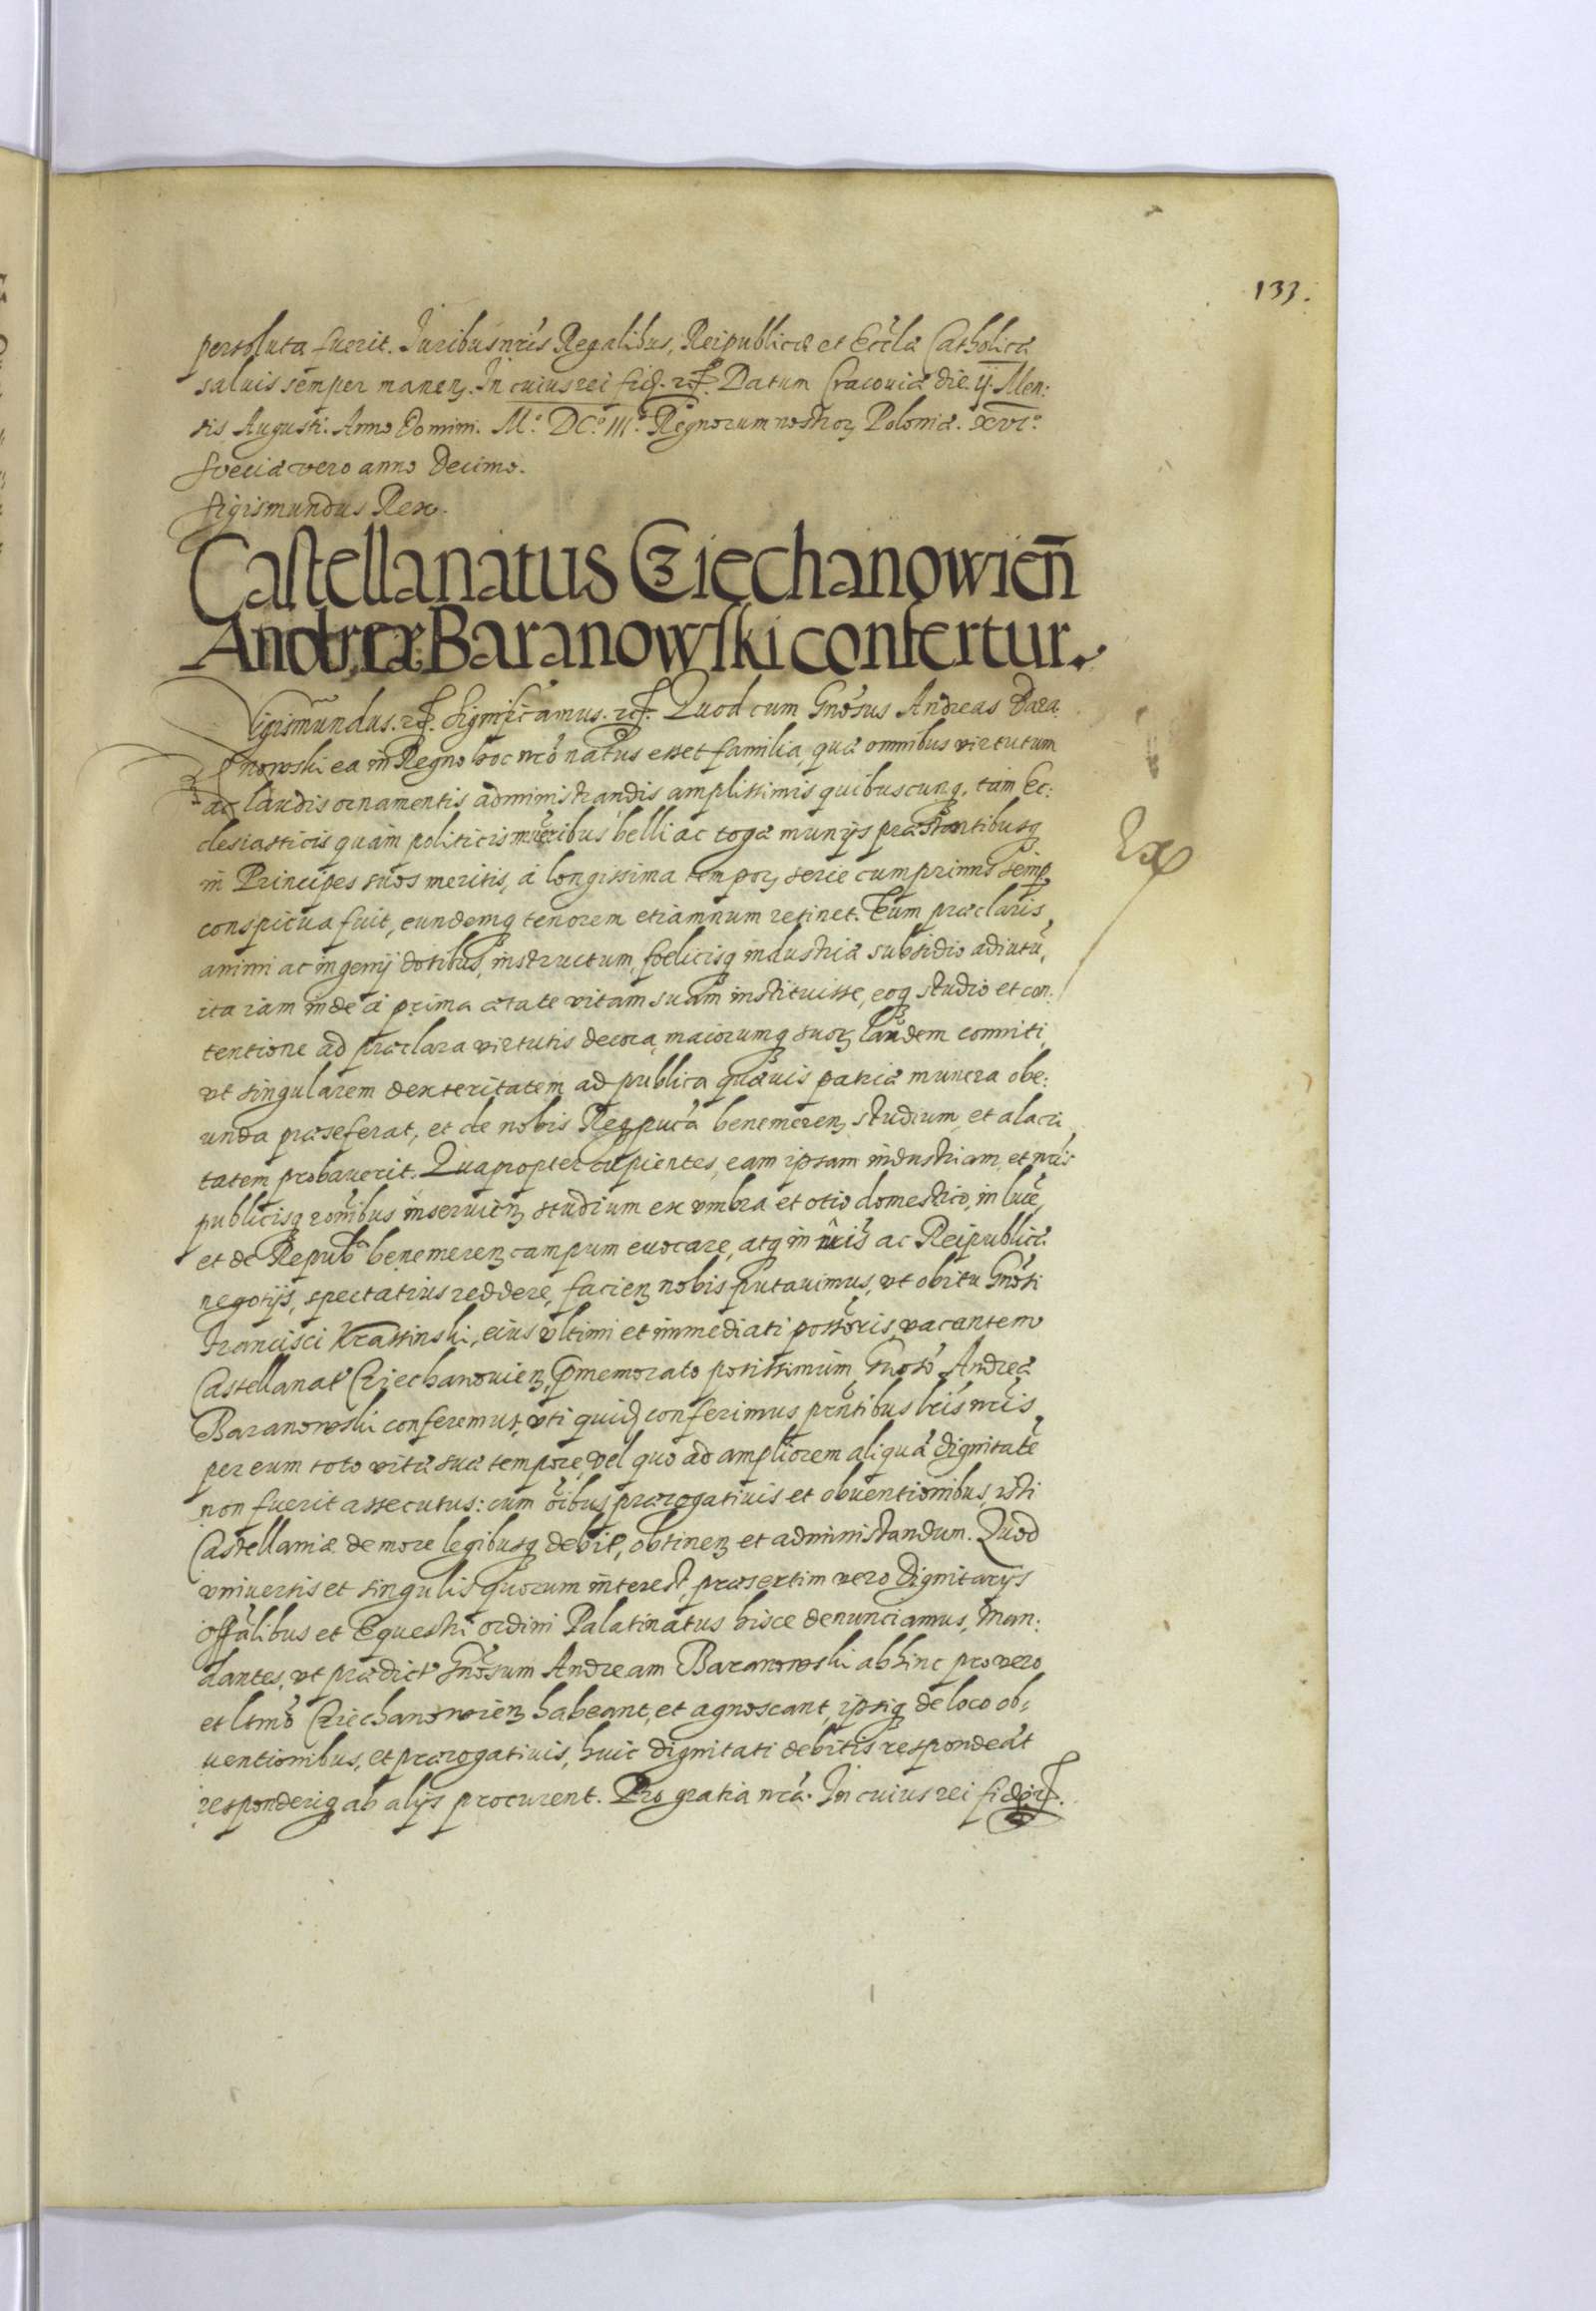 133.
persoluta fuerit. Juribus nr̃is Regalibus, Reipublicæ et Eccl̃æ Catholicæ
saluis semper manenꝫ. In cuius rei fid. rč. Datum Cracouiæ die ij. Men:
sis Augusti. Anno Domini. M.º DC.º III.º Regnorum nostroꝝ Poloniæ. XVI.º
Sveciæ vero anno Decimo.
Sigismundus Rex.
Castellanatus Cziechanowień
Andreæ Baranowski confertur.
Sigismundus. rč. Significamus. rč. Quod cum Gñosus Andreas Bara
nowski ea in Regno hoc nr̃o natus esset familia, quæ omnibus virtutum
ac laudis ornamentis administrandis amplissimis quibuscunq, tam Ec:
clesiasticis quam politicis muneribus belli ac togæ munijs præstantibusq
in Principes suos meritis, á longissima tempoꝝ serie cumprimis semp
conspicua fuit, eundemq tenorem etiamnum retinet. Eum præclaris
animi ac ingenij dotibus, instructum, fœlicisq industriæ subsidio adiutũ,
ita iam inde á prima ætate vitam suam instituisse, eoq studio et con:
tentione ad præclara virtutis decora, maiorumq suoꝝ laudem conniti
vt singularem dexteritatem ad publica quævis patriæ munera obe:
unda præseferat, et de nobis Reqpucá benemerenꝫ studium et alacri
tatem probauerit. Quapropter cupientes, eam ipsam industriam et nr̃is
publicisq ro̅nibus inseruienꝫ studium ex vmbra et otio domestico, in lucẽ,
et de Repubᵃ benemerenꝫ campum euocare, atq in nr̃is ac Reipublicæ
negotijs, spectatius reddere, facienꝫ nobis putauimus, vt obitu Gñosi
Francisci Krassinski, eius vltimi et immediati possõris vacantem
Castellanat Cziechanouienꝫ, p̃memorato potissimùm Gñoso Andreæ
Baranowski conferemus, vti quidꝫ conferimus pñtibus lr̃is nr̃is
per eum toto vitæ suæ tempore, vel quo ad ampliorem aliquã dignitatẽ
non fuerit assecutus: cum õibus prærogatiuis et obuentionibus, isti
Castellaniæ de more legibusq debit, obtinenꝫ et administrandum. Quod
vniuersis et singulis quorum interest, præsertim vero Dignitarijs
offãlibus et Equestri ordini Palatinatus hisce denunciamus, Man:
dantes, vt prædict Gñosum Andream Baranowski abhinc pro vero
et ltmõ Cziechanowienꝫ habeant, et agnoscant, ipsiq de loco ob:
uentionibus, et prærogatiuis, huic dignitati debitis respondeãt
responderiq ab alijs procurent. Pro gratia nr̃a. In cuius rei fid. rč.
Ex